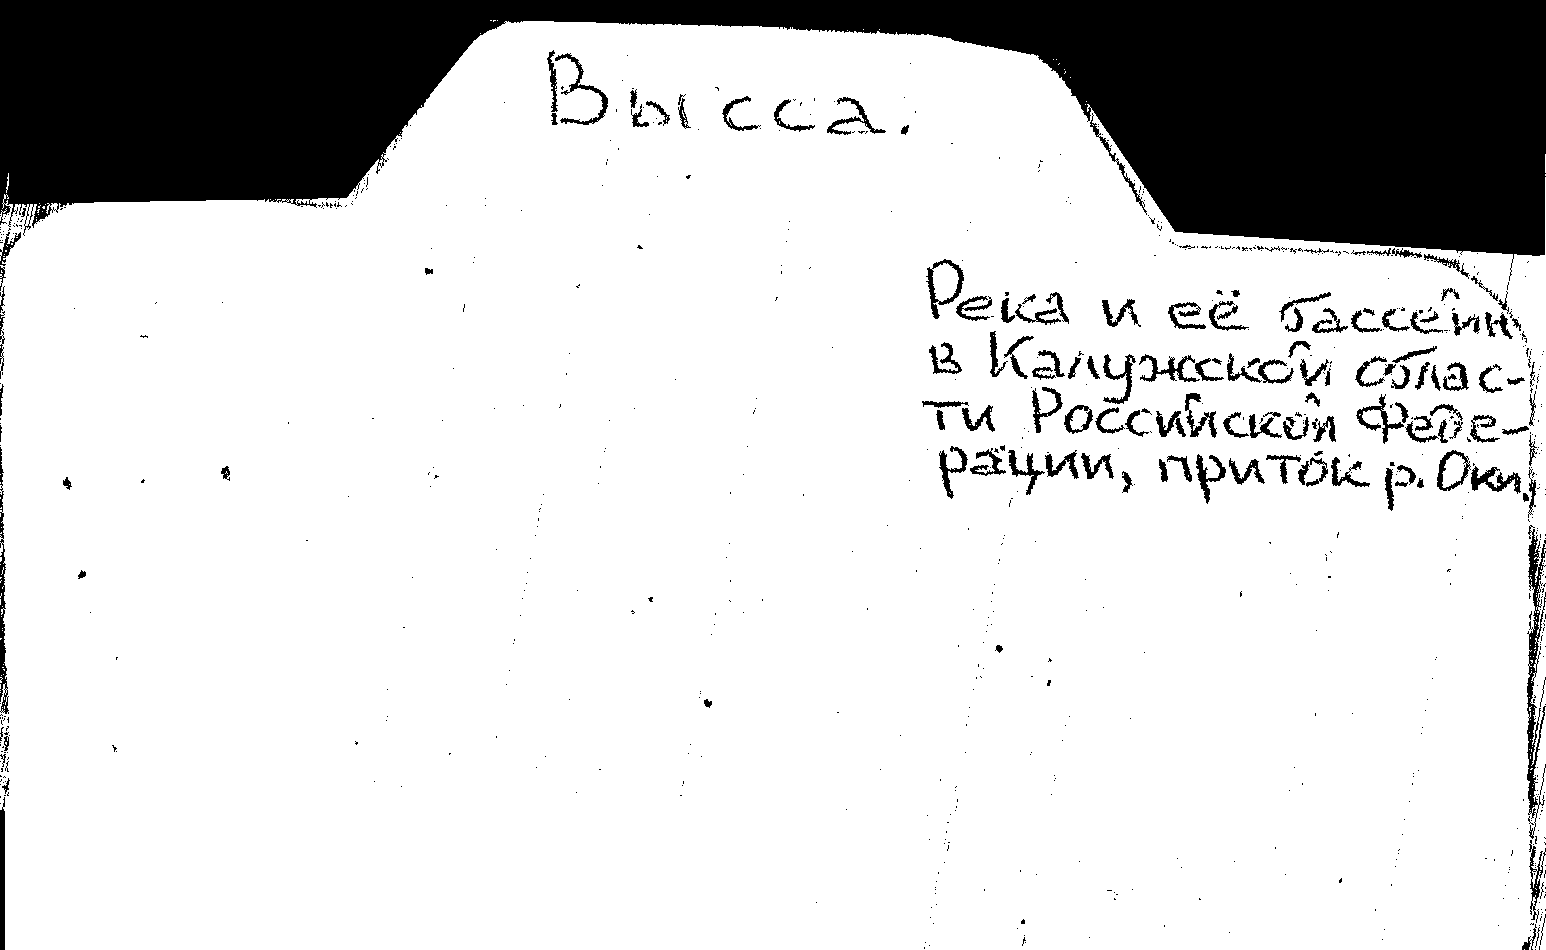 Высса.
Река и её бассейн
в Калужской облас-
ти Российской Феде-
рации, приток р. Оки.